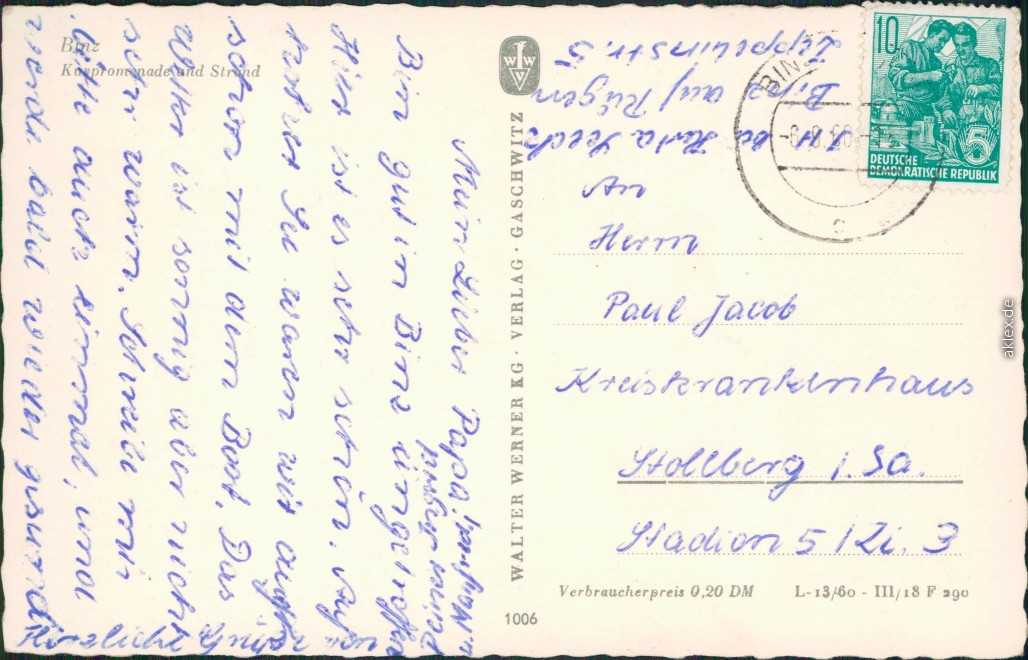 Binz
Kurpromenade und Strand
Mein Lieber Papa!
Bin gut in Binz eingetroffen
Hier ist es sehr schön. Auf
hoher See waren wir auch
schon mit dem Boot. Das
Wetter ist sonnig aber nicht
sehr warm. Schreibe mir
bitte auch einmal, und
werde bald wieder gesund.
Herzliche Grüße von
WALTER WERNER KG · VERLAG · GASCHWITZ
W W
1006
z. H. bei
Binz auf Rügen
Zeppelinstr. 5
An
Herrn
Paul Jacob
Kreiskrankenhaus
Stollberg i. Sa.
Stadion 5 / Zi. 3
Verbraucherpreis 0,20 DM
L-13/60 - III/18 F 290
BINZ
c
10
5
DEUTSCHE
DEMOKRATISCHE REPUBLIK
aklex.de